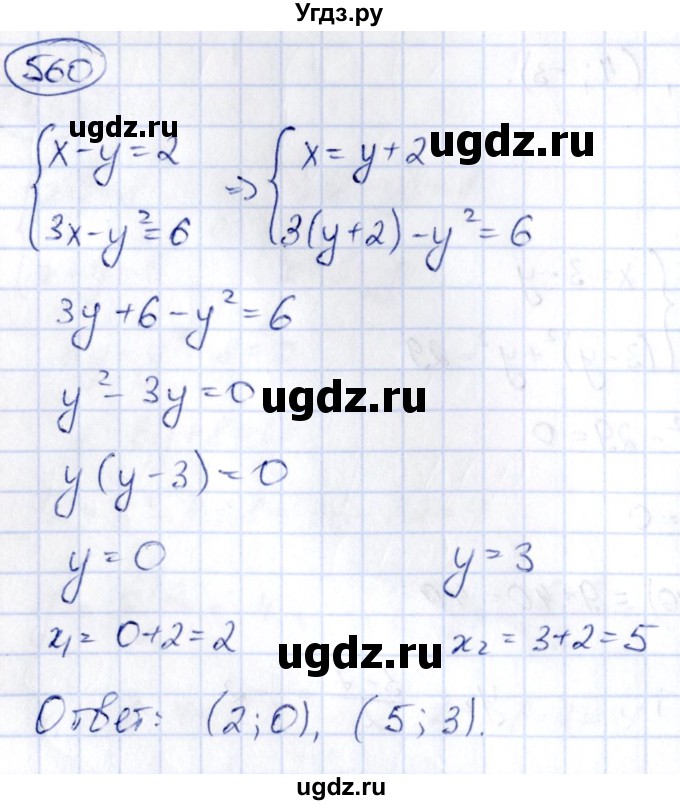 Угдз.ру
560
ugdz.ru
ugdz.ru
{ x - y = 2 => { x = y + 2
3x - y² = 6 3(y+2) - y² = 6
3y + 6 - y² = 6
y² - 3y = 0
ugdz.ru
y (y - 3) = 0
y = 0 y = 3
x₁ = 0+2 = 2 x₂ = 3+2 = 5
ugdz.ru
Ответ: (2; 0), (5; 3).
ugdz.ru